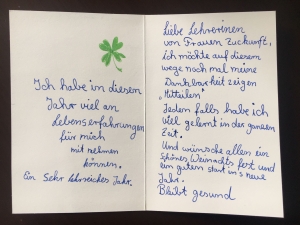 Ich habe in diesen
Jahr viel an
Lebenserfahrungen
für mich
mit nehmen
können.
Ein Sehr lehrreiches Jahr.
Liebe Lehrerinen
von Frauen Zuckunft,
ich möchte auf diesem
wege noch mal meine
Dankbarkeit zeigen
"Mitteilen"
Jeden falls habe ich
viel gelernt in der ganzen
Zeit.
Und wünsche allen ein
schönes Weinachts fest und
ein guten start ins neue
Jahr.
Bleibt gesund